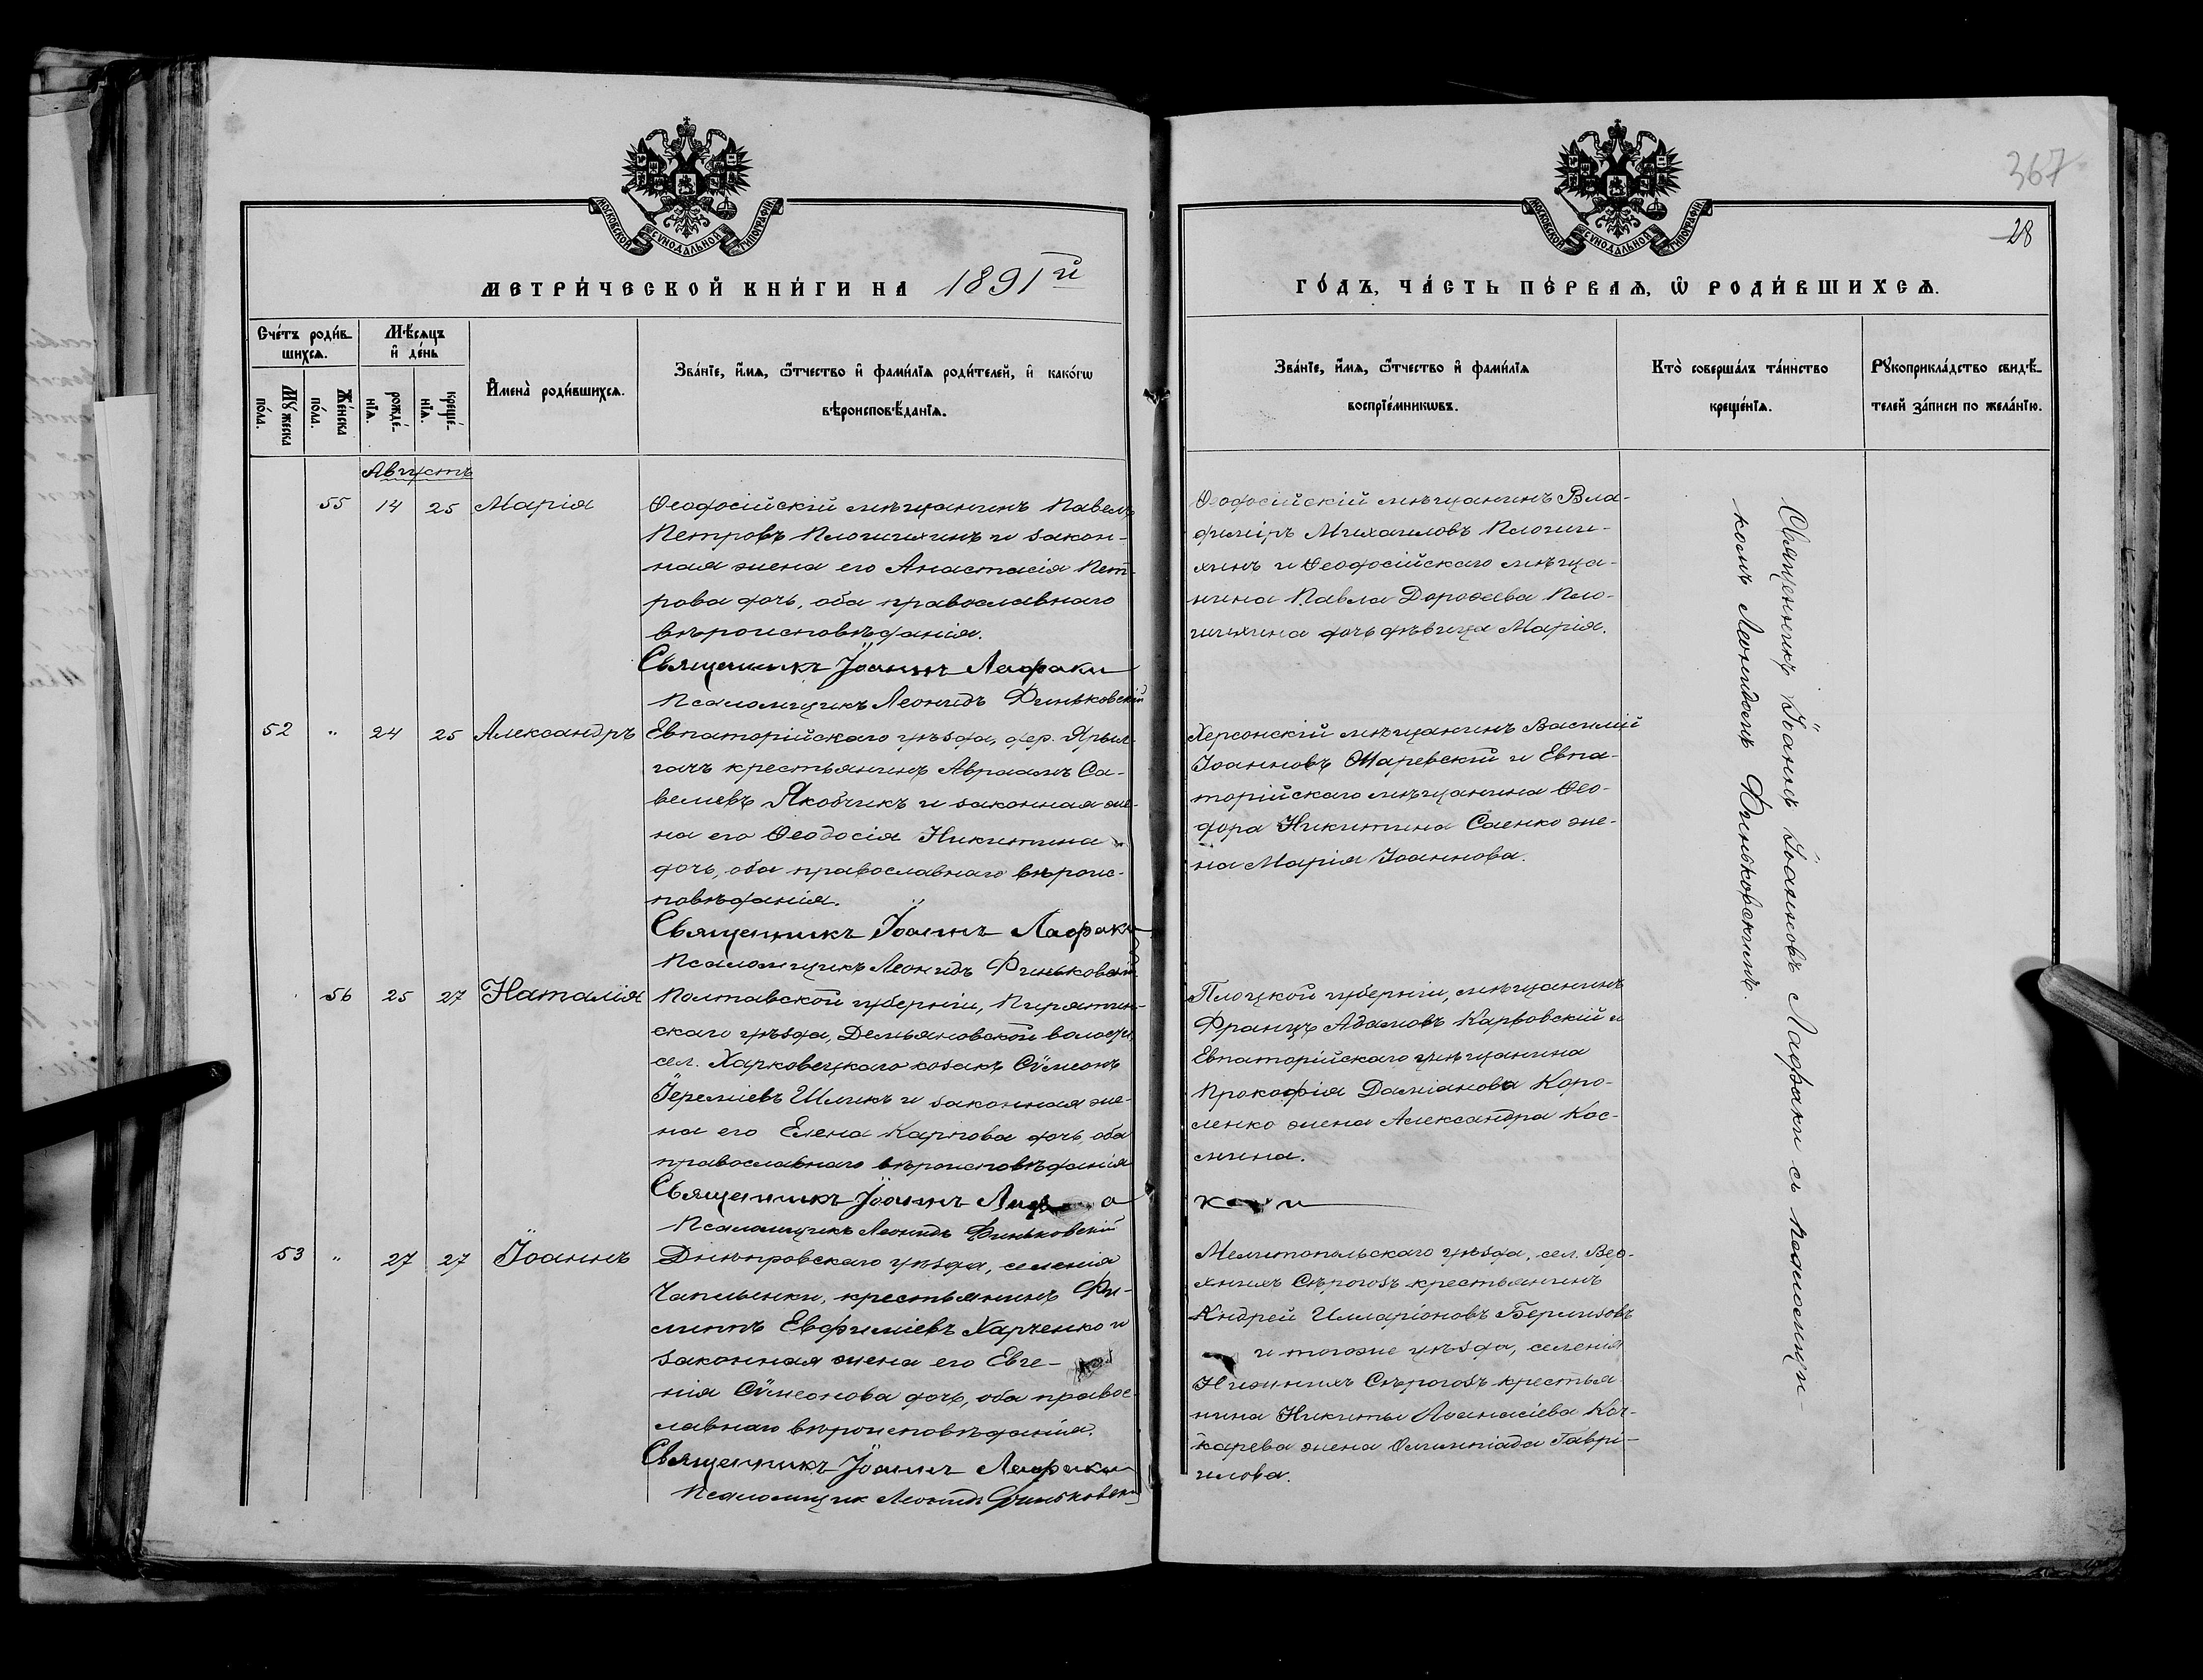 МОСКОВСКОЙ СѴНОДАЛЬНОЙ ТИПОГРАФІИ
МЕТРИ́ЧЕСКОЙ КНИ́ГИ НА 1891й
Сче́тъ роди́в-
шихся.
Мѣ́сяцъ
и҆ де́нь
Мꙋ́жеска
по́ла.
Же́нска
по́ла.
рожде́-
нїя.
креще́-
нїя.
И҆мена̀ роди́вшихся.
Зва́нїе, и҆́мя, ѻ҆́тчество и҆ фами́лїя роди́телей, и҆ како́гѡ
вѣроисповѣ́данїя.
Августъ
55 14 25 Марія
Ѳеодосійскій мѣщанинъ Павелъ
Петровъ Плошихинъ и закон-
ная жена его Анастасія Пет-
рова дочь, оба православнаго
вѣроисповѣданія.
Священникъ Іоаннъ Лафаки
Псаломщикъ Леонидъ Финьковскій
52 " 24 25 Александръ
Евпаторійскаго уѣзда, дер. Ярыл-
гачъ крестьянинъ Авраамъ Са-
велиевъ Якобчикъ и законная же-
на его Ѳеодосія Никитина
дочь, оба православнаго вѣроис-
повѣданія.
Священникъ Іоаннъ Лафаки
Псаломщикъ Леонидъ Финьковскій
56 25 27 Наталія
Полтавской губерніи, Пирятин-
скаго уѣзда, Демьяновской волости,
сел. Харковецкаго козакъ Сѵмеонъ
Іереміевъ Шликъ и законная же-
на его Елена Карпова дочь, оба
православнаго вѣроисповѣданія
Священникъ Іоаннъ
Псаломщикъ Леонидъ Финьковскій
53 " 27 27 Іоаннъ
Днѣпровскаго уѣзда, селенія
Чаплынки, крестьянинъ Фи-
липпъ Евфиміевъ Харченко и
законная жена его Евге-
нія Сѵмеонова дочь, оба правос-
лавнаго вѣроисповѣданія.
Священникъ Іоаннъ Лафаки
Псаломщик Леонидъ Финьковскій
367
28
МОСКОВСКОЙ СѴНОДАЛЬНОЙ ТИПОГРАФІИ
ГО́ДЪ, ЧА́СТЬ ПЕ́РВАЯ, Ѡ҆ РОДИ́ВШИХСЯ.
Зва́нїе, и҆́мя, ѻ҆́тчество и҆ фами́лїя
воспрїе́мникѡвъ.
Кто̀ соверша́лъ та́инство
креще́нїя.
Рꙋкоприкла́дство свидѣ́-
телей за́писи по жела́нїю.
Ѳеодосійскій мѣщанинъ Вла-
диміръ Михаиловъ Плоши-
хинъ и Ѳеодосійскаго мѣща-
нина Павла Дороѳеева Пло-
шихина дочь дѣвица Марія.
Херсонскій мѣщанинъ Василій
Іоанновъ Шаревскій и Евпа-
торійскаго мѣщанина Ѳео-
дора Никитина Саенко же-
на Марія Іоаннова.
Плоцкой губерніи, мѣщанинъ
Францъ Адамовъ Карвовскій и
Евпаторійскаго мѣщанина
Прокофія Даміанова Коро-
ленко жена Александра Кос-
мина.
Мелитопольскаго уѣзда, сел. Вер-
хнихъ Сѣрогозъ крестьянинъ
Андрей Илларіоновъ Берлизовъ
и тогоже уѣзда, селенія
Нижнихъ Сѣрогозъ крестья-
нина Никиты Аѳанасіева Коч-
карева жена Олимпіада Гаврі-
илова.
Священникъ Іоаннъ Іоанновъ Лафаки съ псаломщи-
комъ Леонидомъ Финьковскимъ.